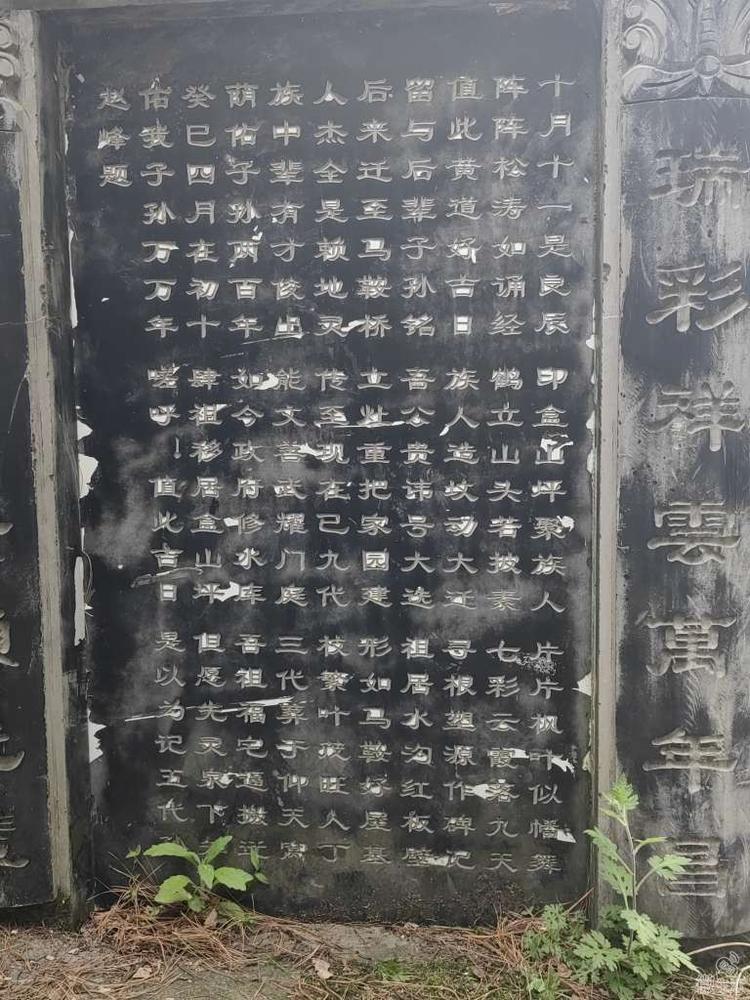 瑞彩祥雲萬年昌
十月十一是良辰 印盒山坪聚族人 片片枫叶似幡舞
阵阵松涛如诵经 鹤立山头若披素 七彩云霞落九天
值此黄道好吉日 族人造坟动大迁 寻根塑源作碑记
留与后辈子孙铭 吾公贵讳号大选 祖居水沟红板壁
后来迁至马鞍桥 立业重把家园建 形如马鞍好屋基
人杰全是赖地灵 传至现在已九代 枝繁叶茂旺人丁
族中辈有才俊出 能文善武耀门庭 三代葬于仰天窝
荫佑子孙两百年 如今政府修水库 吾祖福宅遭搬迁
癸巳四月在初十 肆祖移居盒山坪 但愿先灵泉下
佑我子孙万万年 嗟呼！值此吉日 是以为记五代
赵峰题